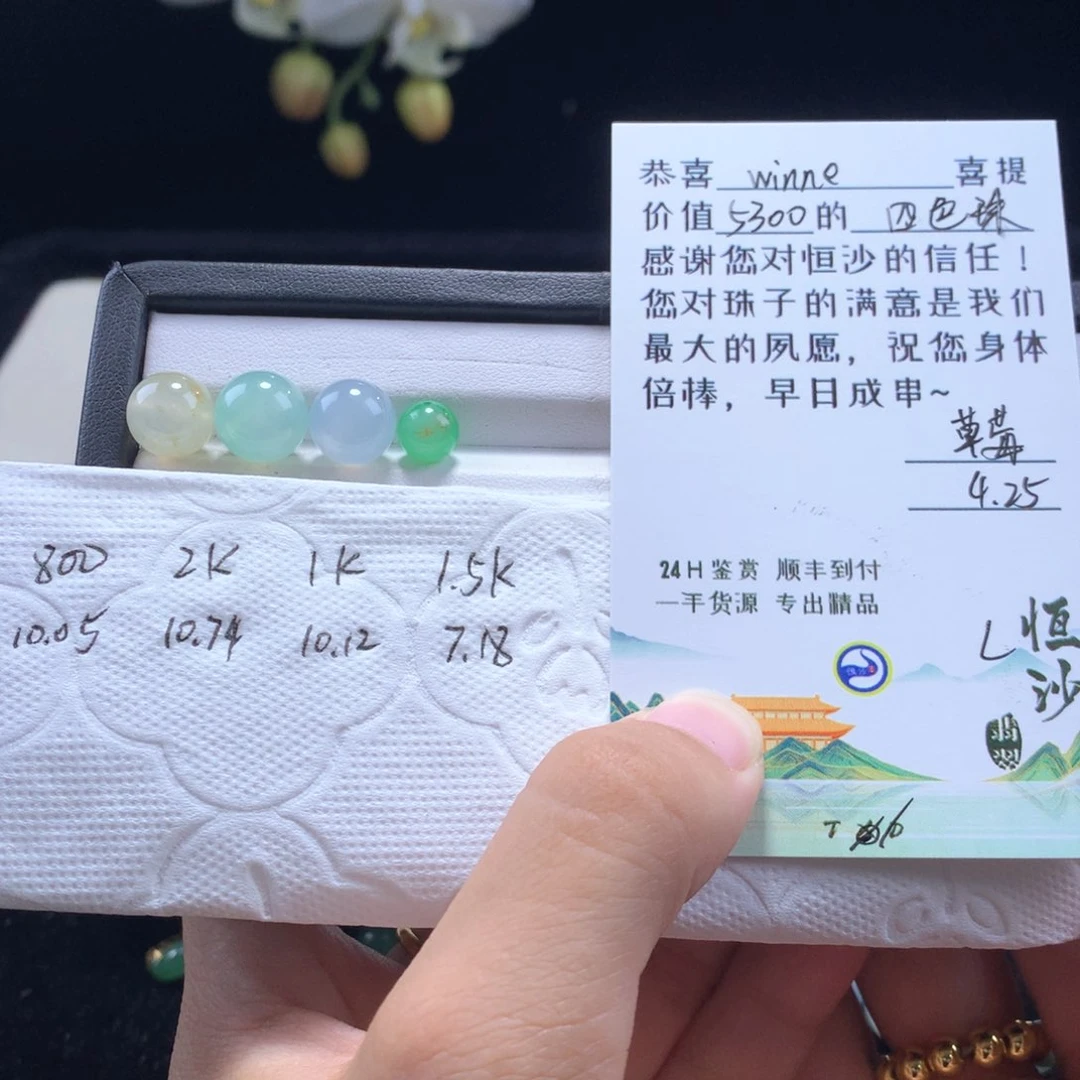 恭喜 winne 喜提
价值 5300 的 四色珠
感谢您对恒沙的信任！
您对珠子的满意是我们
最大的夙愿，祝您身体
倍棒，早日成串~
草莓
4.25
24H鉴赏 顺丰到付
一手货源 专出精品
恒沙
翡翠
800 2K 1K 1.5K
10.05 10.74 10.12 7.18